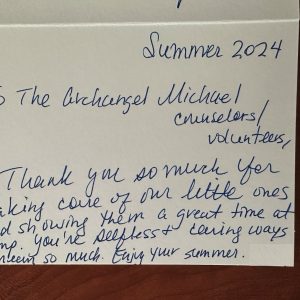 Summer 2024
To The Archangel Michael
counselors/
volunteers,
Thank you so much for
taking care of our little ones
and showing them a great time at
You're selfless & caring ways
so much. Enjoy your summer.